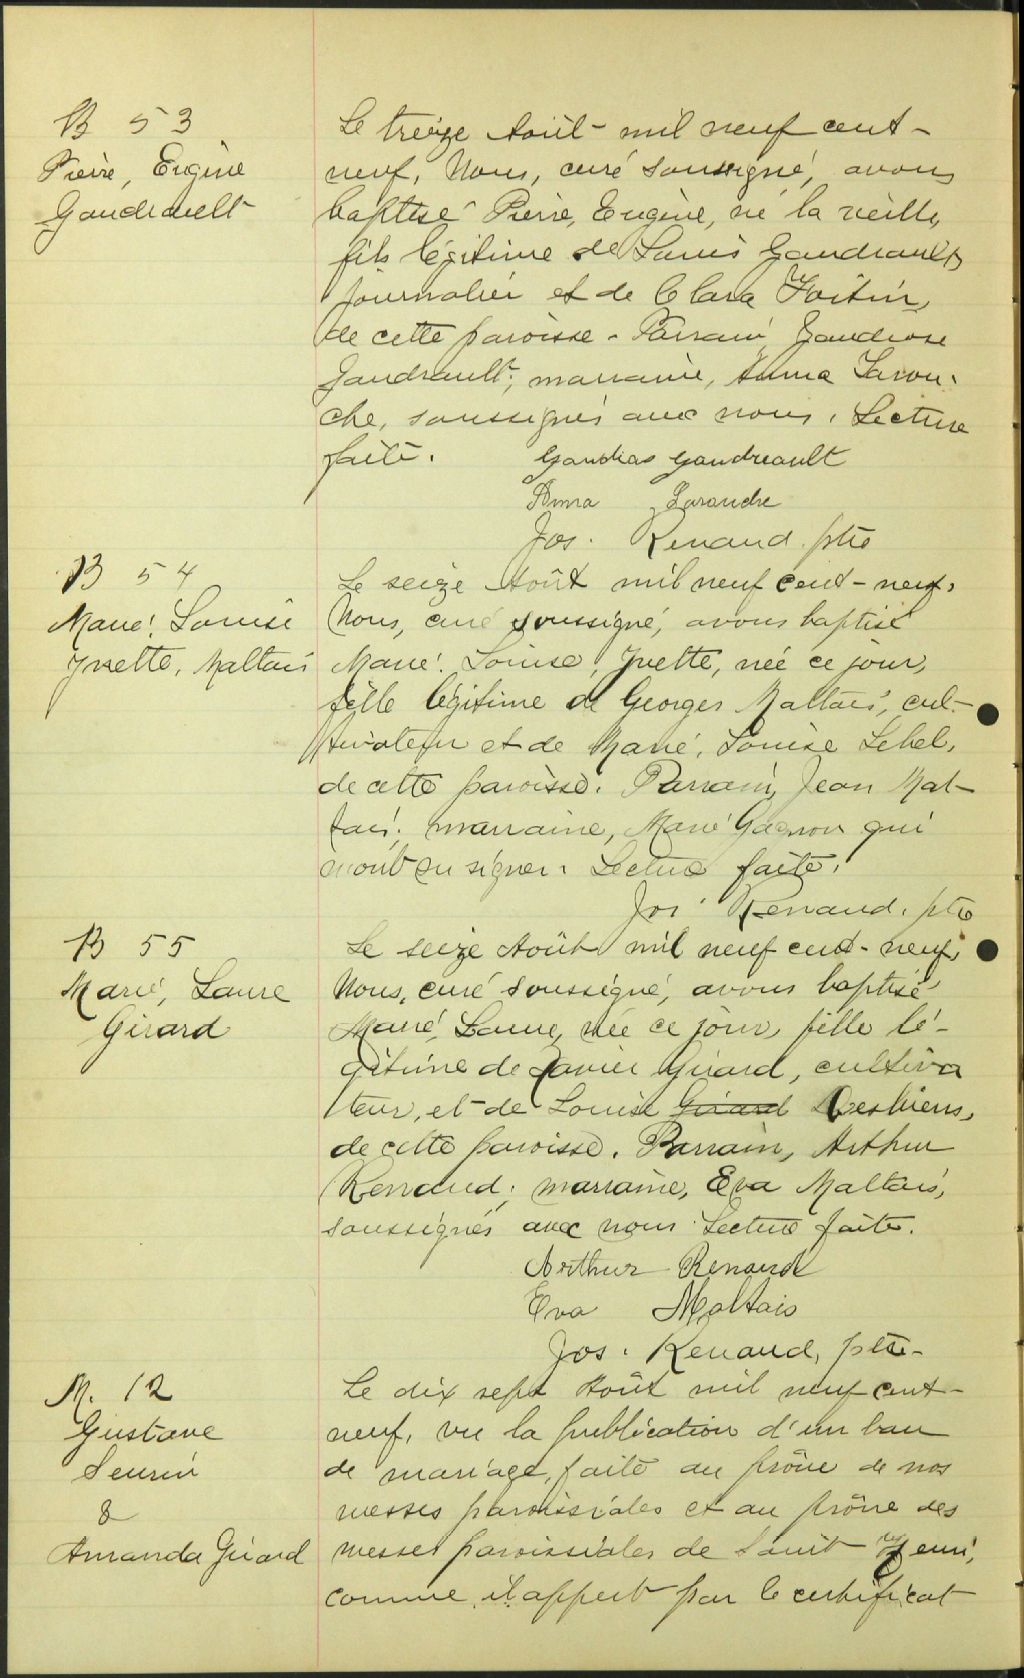 B 53
Pierre, Eugène
Gaudreault
Le treize Août mil neuf cent-
neuf, Nous, curé soussigné, avons
baptisé Pierre, Eugène, né la veille,
fils légitime de Louis Gaudreault,
journalier et de Clara Fortin,
de cette paroisse. Parrain, Gaudiose
Gaudreault; marraine, Anna Larou-
che, soussignés avec nous. Lecture
faite.
Gaudias Gaudreault
Anna Larouche
Jos. Renaud. ptre
B 54
Marie, Louise
Yvette, Maltais
Le seize Août mil neuf cent-neuf,
Nous, curé soussigné, avons baptisé
Marie, Louise, Yvette, née ce jour,
fille légitime de Georges Maltais, cul-
tivateur et de Marie, Louise Lebel,
de cette paroisse. Parrain, Jean Mal-
tais; marraine, Marie Gagnon qui
n'ont su signer. Lecture faite.
Jos. Renaud. ptre
B 55
Marie, Laure
Girard
Le seize Août mil neuf cent-neuf,
Nous, curé soussigné, avons baptisé
Marie, Laure, née ce jour, fille lé-
gitime de Xavier Girard, cultiva
teur, et de Louise Girard Desbiens,
de cette paroisse. Parrain, Arthur
Renaud; marraine, Eva Maltais,
soussignés avec nous. Lecture faite.
Arthur Renaud
Eva Maltais
Jos. Renaud, ptre-
M. 12
Gustave
&
Amanda Girard
Le dix sept Août mil neuf cent-
neuf, vu la publication d'un ban
de mariage, faite au prône de nos
messes paroissiales et au prône des
messes paroissiales de Saint
comme il appert par le certificat